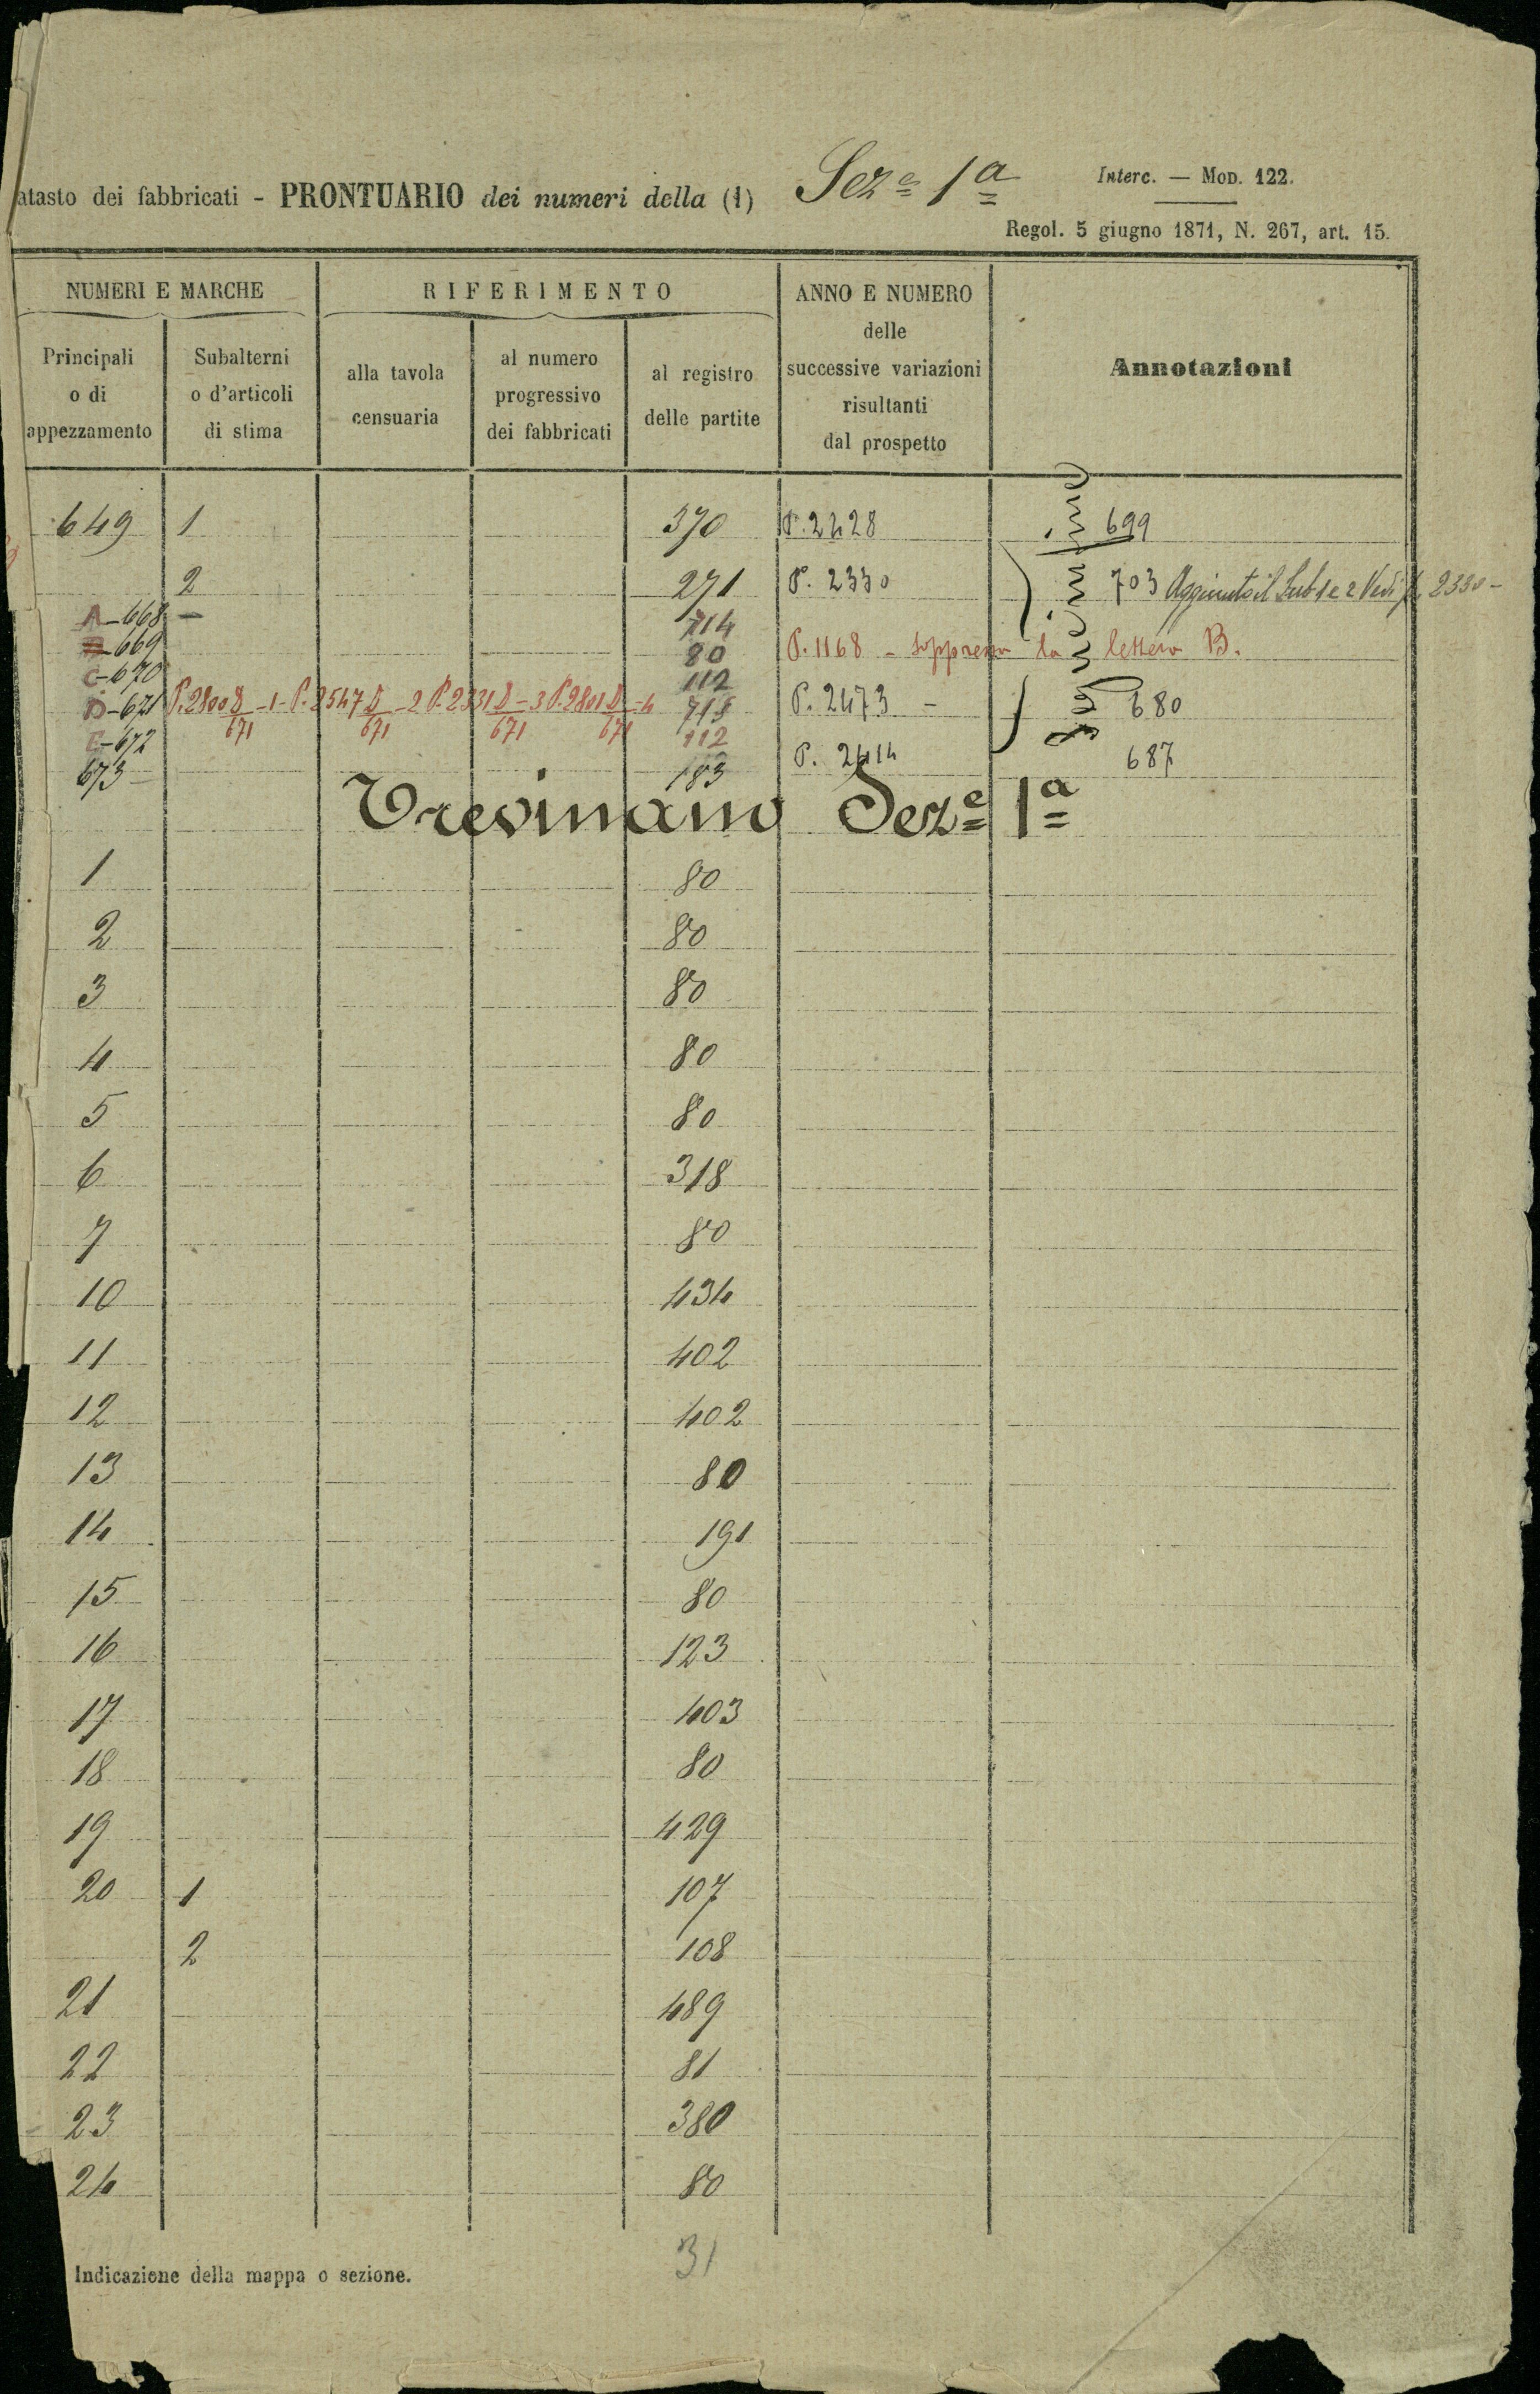 atasto dei fabbricati - PRONTUARIO dei numeri della (1) Sez.e 1a Interc. — Mod. 122.
Regol. 5 giugno 1871, N. 267, art. 15.
NUMERI E MARCHE RIFERIMENTO ANNO E NUMERO delle successive variazioni risultanti dal prospetto Annotazioni
Principali o di appezzamento Subalterni o d'articoli di stima alla tavola censuaria al numero progressivo dei fabbricati al registro delle partite
649 1 370 P. 2428 699
2 271 P. 2330 703 Aggiunto il Sub 1 e 2 Vedi P. 2330 -
A-668 - 714
B-669 80 P. 1168 - soppressa la lettera B.
C-670 112
D-671 P. 2800 D/671 -1- P. 2547 D/671 -2 P. 2331 D/671 -3 P. 2801 D/671 -4 715 P. 2473 - 680
E-672 112
673 183 P. 2414 687
Trevinano Sez.e 1a
1 80
2 80
3 80
4 80
5 80
6 318
7 80
10 434
11 402
12 402
13 80
14 191
15 80
16 123
17 403
18 80
19 429
20 1 107
2 108
21 489
22 81
23 380
24 80
31
Indicazione della mappa o sezione.